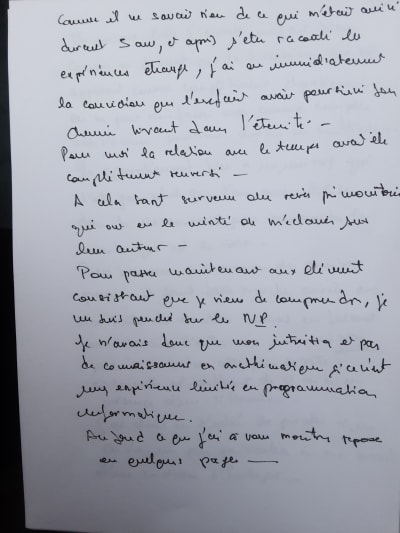 Comme il ne savait rien de ce qui m'était arrivé
durant 5 ans, et après s'être raconté les
expériences étrange, j'ai eu immédiatement
la conviction que l'enfant avait poursuivi son
chemin vivant dans l'éternité. –
Pour moi la relation avec le temps avait été
complètement renversé –
A cela sont survenu des rêves prémonitoires
qui ont eu le mérite de m'éclairer sur
leur auteur –
Pour passer maintenant aux élément
consistant que je viens de comprendre, je
me suis penché sur le NP.
Je n'avais donc que mon intuition et pas
de connaissances en arithmétique si ce n'est
une expérience limitée en programmation
informatique.
Au fond ce que j'ai à vous montrer repose
en quelques pages —